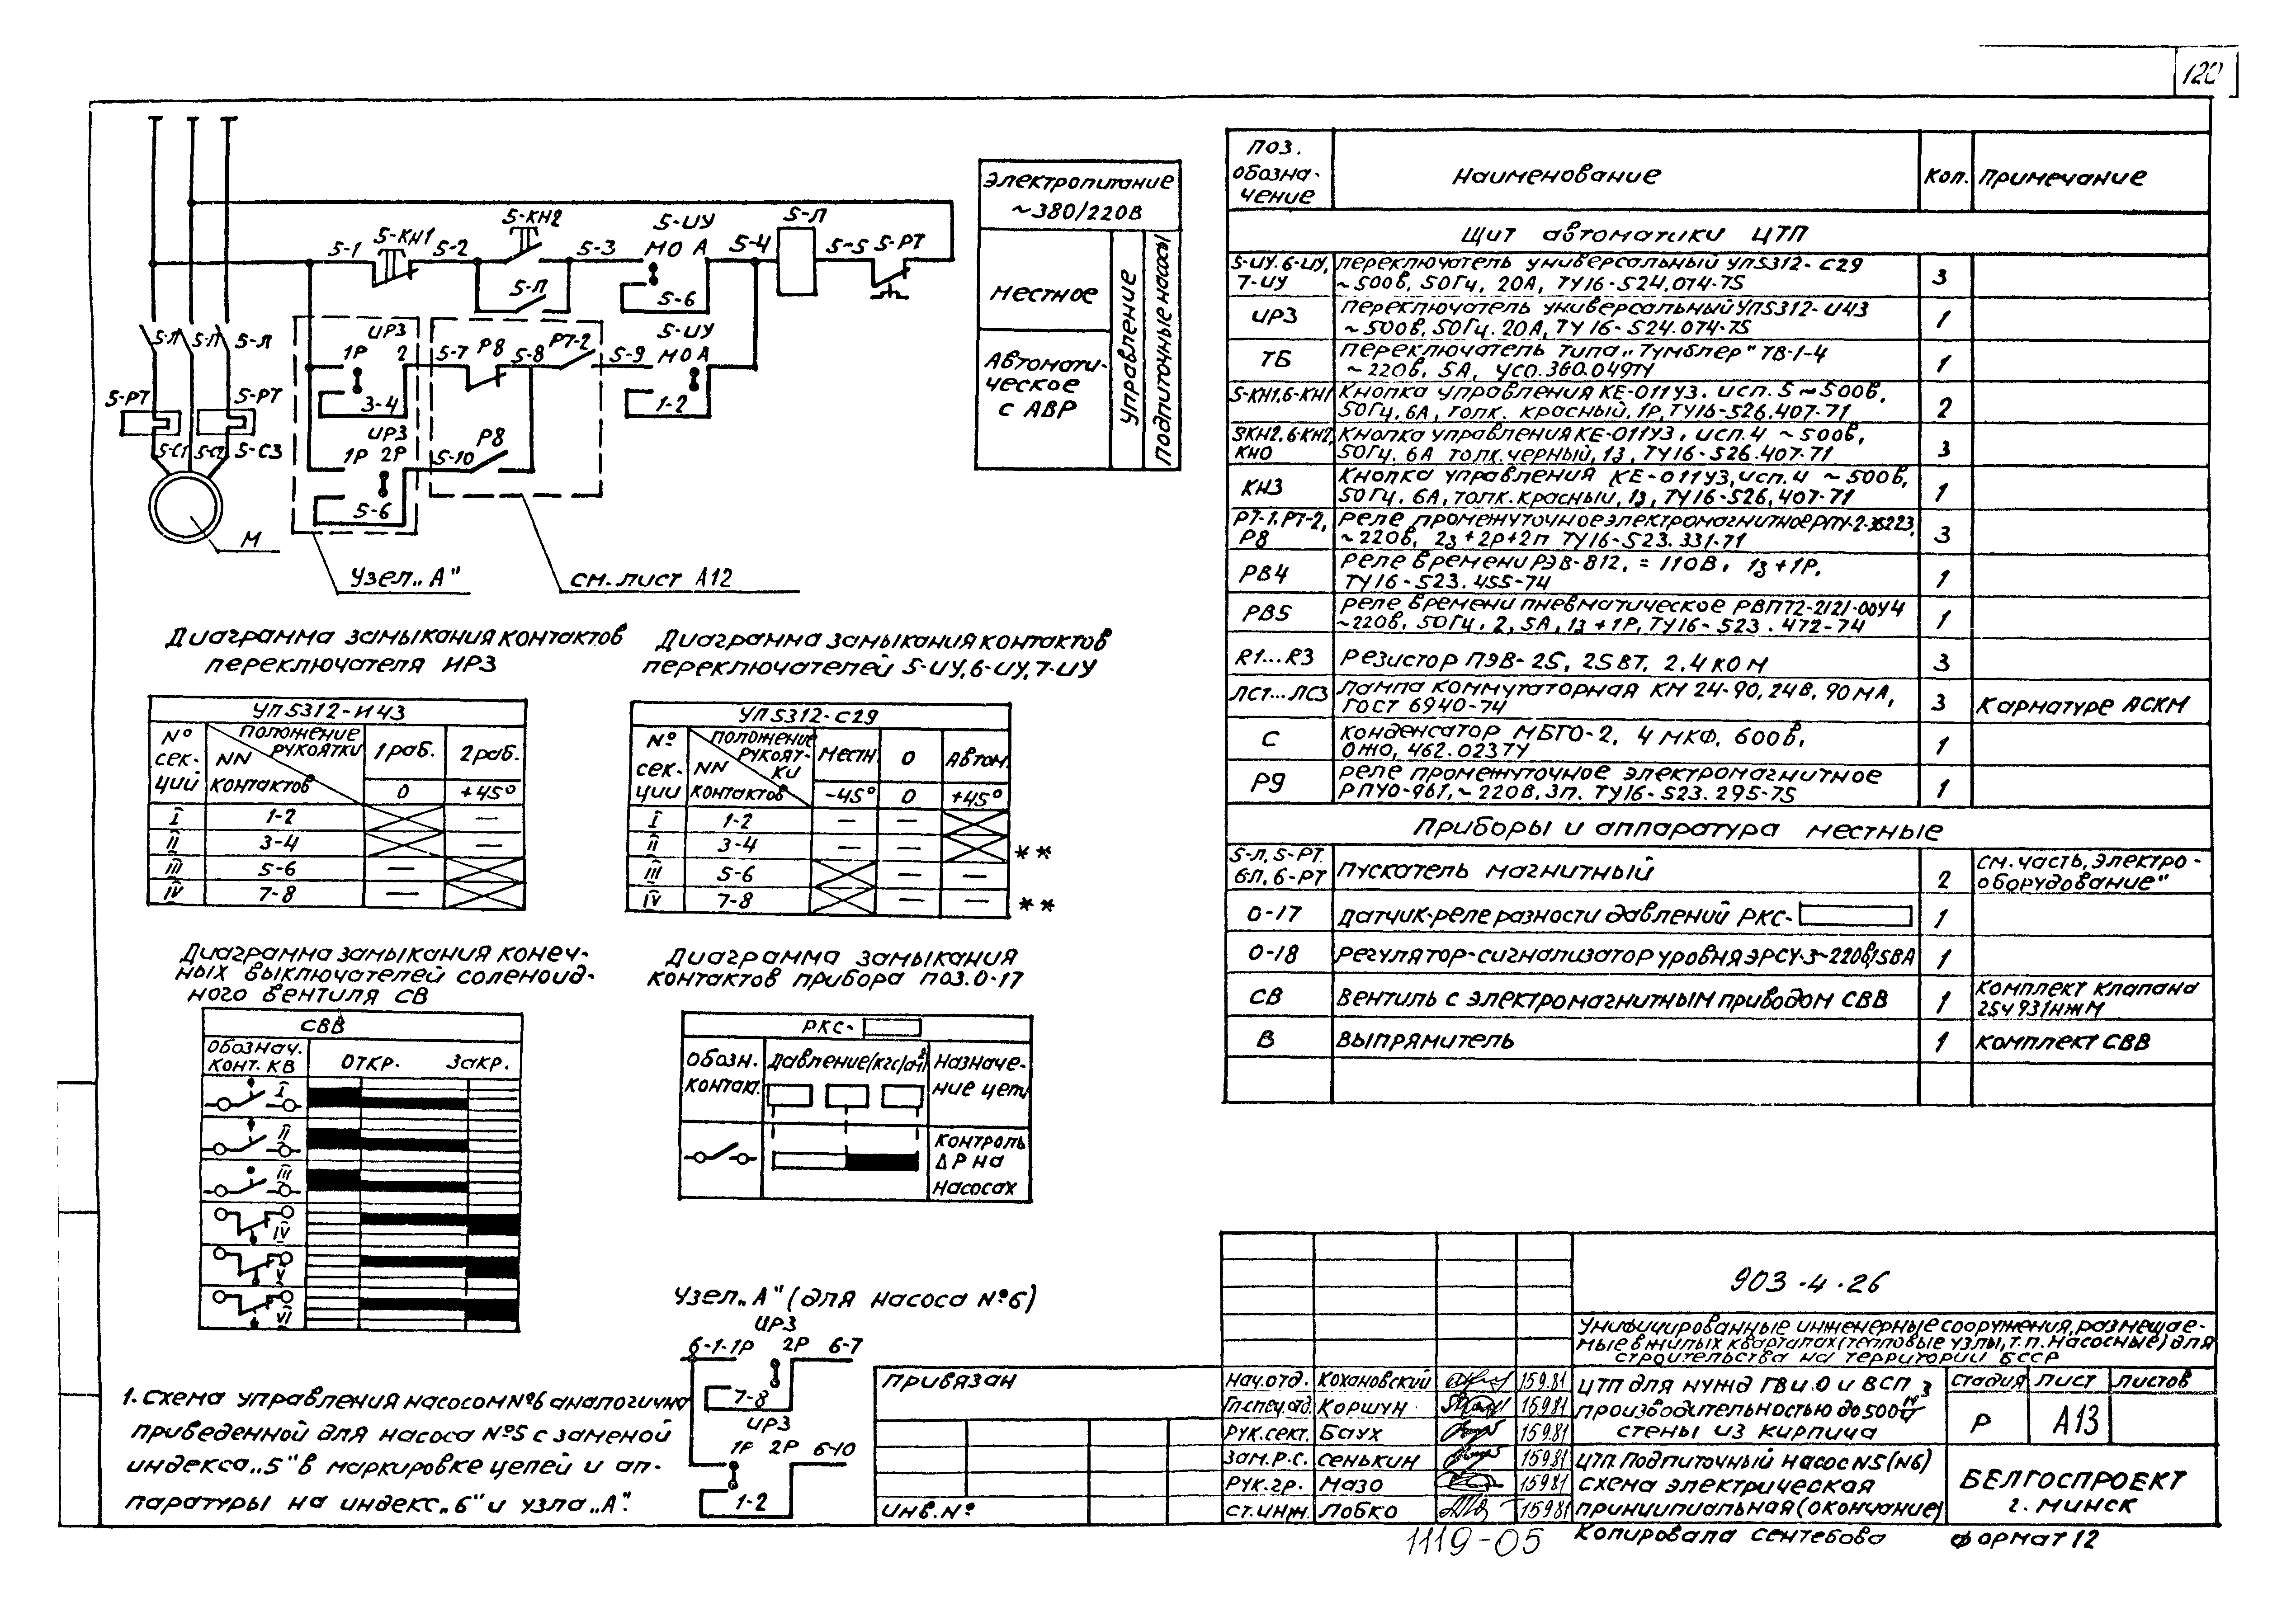 120
5-1
5-КН1
5-2
5-КН2
5-3
5-ИУ
М О А
5-4
5-Л
5-5
5-РТ
5-Л
5-6
5-Л
5-Л
5-Л
5-РТ
5-РТ
5-С1
5-С2
5-С3
М
ИР3
1Р 2
3-4
ИР3
1Р 2Р
5-6
5-7
Р8
5-8
Р7-2
5-9
5-ИУ
М О А
1-2
5-10
Р8
Узел „А"
см. лист А12
Электропитание
~380/220В
Местное
Автомати-
ческое
с АВР
Управление
Подпиточные насосы
Диаграмма замыкания контактов
переключателя ИР3
УП5312-И43
№
сек-
ций
Положение
рукоятки
NN
контактов
1 раб.
2 раб.
0
+45°
I 1-2 —
II 3-4 —
III 5-6 —
IV 7-8 —
Диаграмма замыкания контактов
переключателей 5-ИУ, 6-ИУ, 7-ИУ
УП5312-С29
№
сек-
ции
Положение
рукоят-
ки
NN
контактов
Местн.
0
Автом.
-45°
0
+45°
I 1-2 — —
II 3-4 — — **
III 5-6 — —
IV 7-8 — — **
Диаграмма замыкания конеч-
ных выключателей соленоид-
ного вентиля СВ
СВВ
Обознач.
конт. КВ
Откр.
Закр.
I
II
III
IV
V
VI
Диаграмма замыкания
контактов прибора поз. 0-17
РКС-
Обозн.
контак.
Давление (кгс/см²)
Назначе-
ние цепи
Контроль
ΔР на
насосах
Узел „А" (для насоса №6)
ИР3
6-1-1Р 2Р 6-7
7-8
ИР3
1Р 2Р 6-10
1-2
1. Схема управления насосом №6 аналогична
приведенной для насоса №5 с заменой
индекса „5" в маркировке цепей и ап-
паратуры на индекс „6" и узла „А".
Поз.
обозна-
чение
Наименование
Кол.
Примечание
Щит автоматики ЦТП
5-ИУ. 6-ИУ,
7-ИУ
Переключатель универсальный УП5312-С29
~500В, 50Гц, 20А, ТУ16-524.074-75
3
ИР3
Переключатель универсальный УП5312-И43
~500В, 50Гц. 20А, ТУ16-524.074-75
1
ТБ
Переключатель типа „Тумблер" ТВ-1-4
~220В, 5А, УСО.360.049ТУ
1
5-КН1, 6-КН1
Кнопка управления КЕ-011У3. исп. 5 ~500В,
50Гц, 6А, толк. красный, 1Р, ТУ16-526.407-71
2
5КН2, 6-КН2,
КН0
Кнопка управления КЕ-011У3, исп. 4 ~500В,
50Гц. 6А толк. черный, 1з, ТУ16-526.407-71
3
КН3
Кнопка управления КЕ-011У3, исп. 4 ~500В,
50Гц. 6А, толк. красный, 1з, ТУ16-526,407-71
1
Р7-1, Р7-2,
Р8
Реле промежуточное электромагнитное РПУ-2-36223,
~220В, 2з+2р+2п ТУ16-523.331-71
3
РВ4
Реле времени РЭВ-812, =110В, 1з+1Р,
ТУ16-523.455-74
1
РВ5
Реле времени пневматическое РВП72-2121-00У4
~220В, 50Гц, 2,5А, 1з+1Р, ТУ16-523.472-74
1
R1...R3
Резистор ПЭВ-25, 25Вт, 2.4кОм
3
ЛС1...ЛС3
Лампа коммутаторная КМ 24-90, 24В, 90мА,
ГОСТ 6940-74
3
К арматуре АСКМ
С
Конденсатор МБГО-2, 4 мкФ, 600В,
ОЖО, 462.023ТУ
1
Р9
Реле промежуточное электромагнитное
РПУ0-961, ~220В, 3п. ТУ16-523.295-75
1
Приборы и аппаратура местные
5-Л, 5-РТ.
6Л, 6-РТ
Пускатель магнитный
2
См. часть „Электро-
оборудование"
0-17
Датчик-реле разности давлений РКС-
1
0-18
Регулятор-сигнализатор уровня ЭРСУ-3~220В, 15ВА
1
СВ
Вентиль с электромагнитным приводом СВВ
1
Комплект клапана
25ч931нжМ
В
Выпрямитель
1
Комплект СВВ
903-4-26
Унифицированные инженерные сооружения, размещае-
мые в жилых кварталах (тепловые узлы, т.п. насосные) для
строительства на территории БССР
Привязан
Инв. №
Нач. отд. Кохановский 15.9.81
Гл. спец. отд. Коршун 15.9.81
Рук. сект. Баух 15.9.81
Зам. Р.С. Сенькин 15.9.81
Рук. гр. Мазо 15.9.81
Ст. инж. Лобко 15.9.81
ЦТП для нужд ГВ и О и ВСП
производительностью до 500 м³/ч
стены из кирпича
Стадия Лист Листов
Р А13
ЦТП. Подпиточный насос N5 (N6)
схема электрическая
принципиальная (окончание)
БЕЛГОСПРОЕКТ
г. Минск
1119-05
Копировала Сентебова
Формат 12